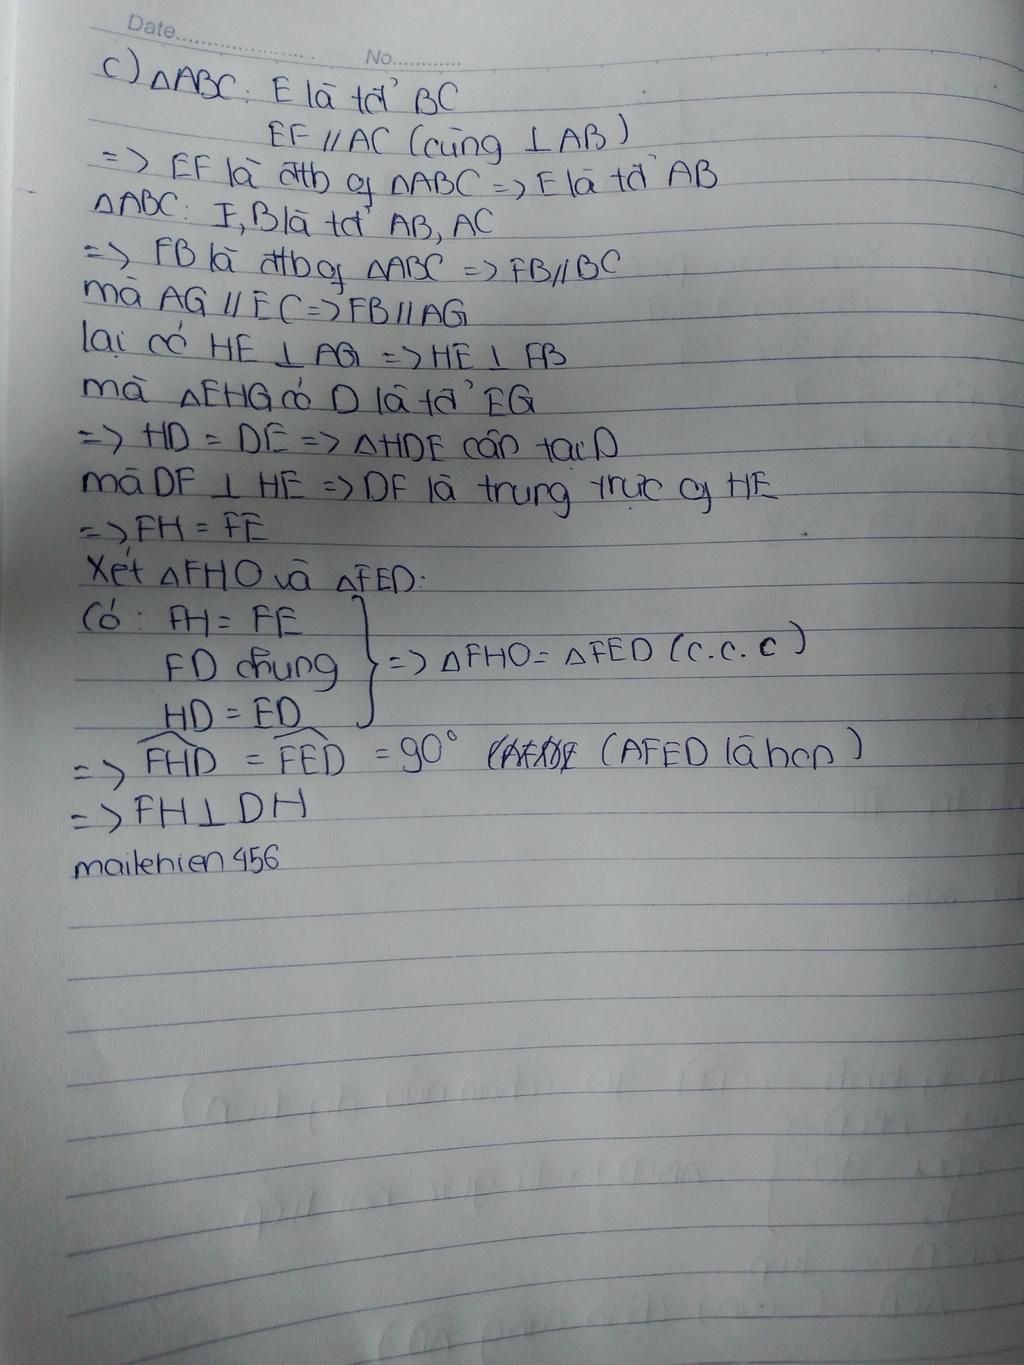 Date....................
No............
c) ΔABC: E là tđ' BC
EF // AC (cùng ⊥ AB)
=> EF là đtb of ΔABC => E là tđ' AB
ΔABC: I, B là tđ' AB, AC
=> FB là đtb of ΔABC => FB // BC
mà AG // EC => FB // AG
lại có HE ⊥ AG => HE ⊥ FB
mà ΔEHG có D là tđ' EG
=> HD = DE => ΔHDE cân tại D
mà DF ⊥ HE => DF là trung trực of HE
=> FH = FE
Xét ΔFHO và ΔFED:
Có: FH = FE
FD chung => ΔFHO = ΔFED (c.c.c)
HD = ED
=> FHD = FED = 90° (AFED là hcn)
=> FH ⊥ DH
mailehien456